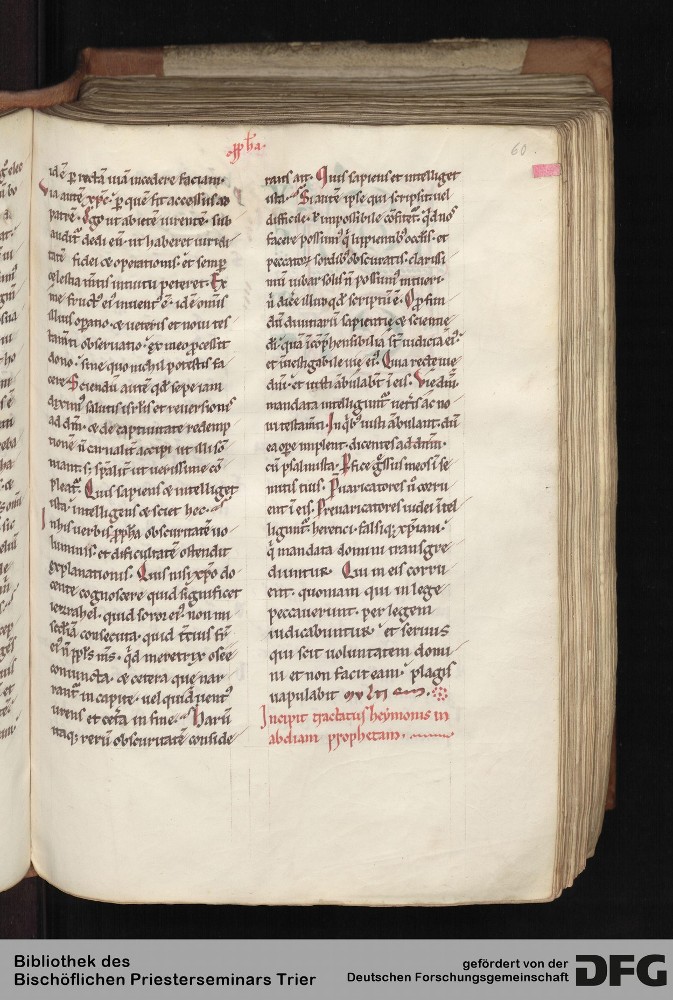 60.
id ē ꝑ rectā uiā incedere faciam.
Via autē xp̄c. ꝑ quē fit accessus ad
patrē. Ego ut abietē uirentē. sub
audit᷑ dedi eū. ut haberet uiridi
tatē fidei & operationis. et semꝑ
celestia intuitu peteret. Ex
me fruct᷒ ei᷒ inuent᷒ ē. id ē om̄is
illius & ueteris et noui tes
tam̄ti obseruatio. ex meo ꝓcessit
dono. sine quo nichil potestis fa
cere. Sciendū autē qd̄ sepe iam
salutis isrl̄is et reuersionis
ad dn̄m. & de captiuitate redemp
tionē n̄ carnalit̄ accipi ut illi sō
niant. s; sp̄alit̄ ut uerissime cō
pleat᷑. Quis sapiens & intelliget
ista. intelligens & sciet hec.
In his uerbis ꝓph̄a obscuritatē uo
luminis. et dificultatē ostendit
explanationis. Quis nisi xp̄o do
cente cognoscere quid significet
iezrahel. quid soror ei᷒ non mi
sc̄dīam consecuta. quid t̄cius fr̄
ei᷒ n̄ ppl̄s m̄s. qd̄ meretrix osee
coniuncta. & cetera que nar
rant᷑ in capite. uel quid uent᷒
urens et cet̄a in fine. Harū
itaq; rerū obscuritatē conside
rans ait. Quis sapiens et intelliget
ista. Si autē ipse qui scripsit uel
difficile. ł impossibile cōfitet᷑. qd̄ nos
facere possum᷒ qui lippientib᷒ occl̄is. et
peccatoꝝ sordib᷒ obscuratis. clarissi
mū iubar solis n̄ possum᷒ intueri.
n̄ dic̄e illud qd̄ scriptū ē. O ꝓfun
dū diuitiarū sapientie & scientie
di᷒. quā incōp̄hensibilia st̄ iudicia ei᷒.
et inuestigabiles uie ei᷒. Quia recte uie
dn̄i. et iusti ābulabt̄ ī eis. Vie dn̄i
mandata intelligunt᷑ uet̄is ac no
ui testam̄ti. In qb᷒ iusti ābulant. dū
ea oꝑe implent. dicentes ad dn̄m.
cū psalmista. Perfice g̊ssus meos ī se
mitis tuis. P̄uaricatores ū corru
ent ī eis. Preuaricatores iudei ītel
ligunt᷑. heretici. falsiq; xp̄iani.
qi mandata domini transgre
diuntur. Qui in eis corru
ent. quoniam qui in lege
peccauerunt. per legem
iudicabuntur. et seruus
qui scit uoluntatem domi
ni et non facit eam. plagis
uapulabit mvltis.
Incipit tractatus heymonis in
abdiam prophetam.
Bibliothek des
Bischöflichen Priesterseminars Trier
gefördert von der
Deutschen Forschungsgemeinschaft
DFG